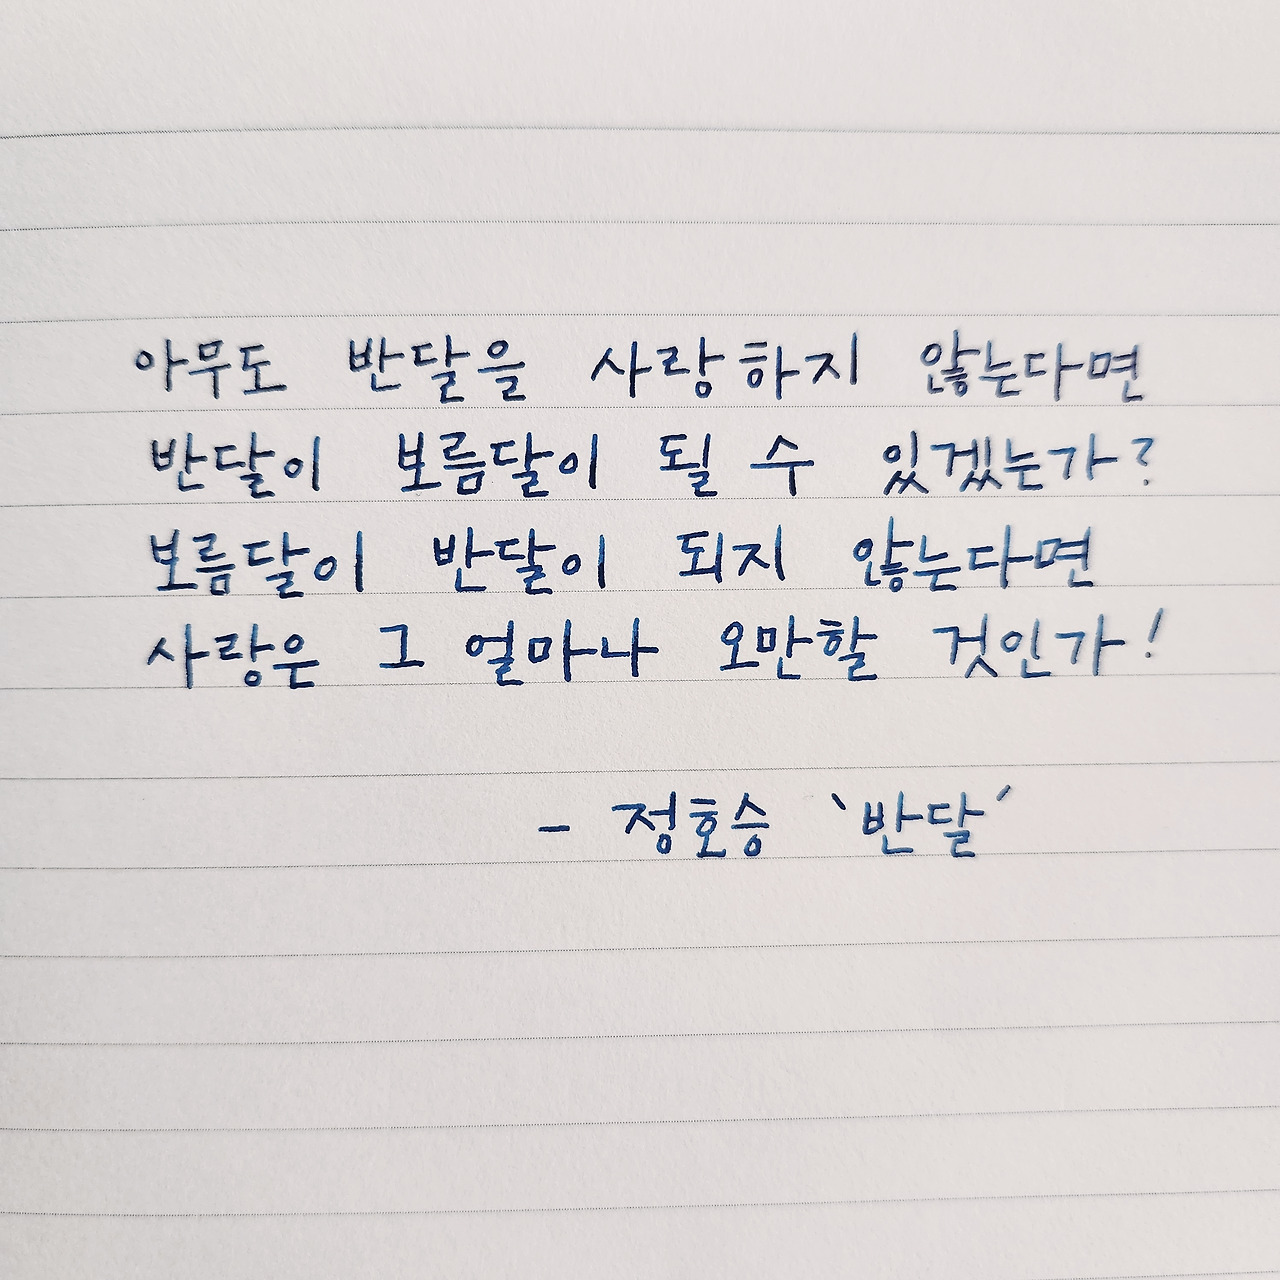 아무도 반달을 사랑하지 않는다면
반달이 보름달이 될 수 있겠는가?
보름달이 반달이 되지 않는다면
사랑은 그 얼마나 오만할 것인가!
- 정호승 '반달'